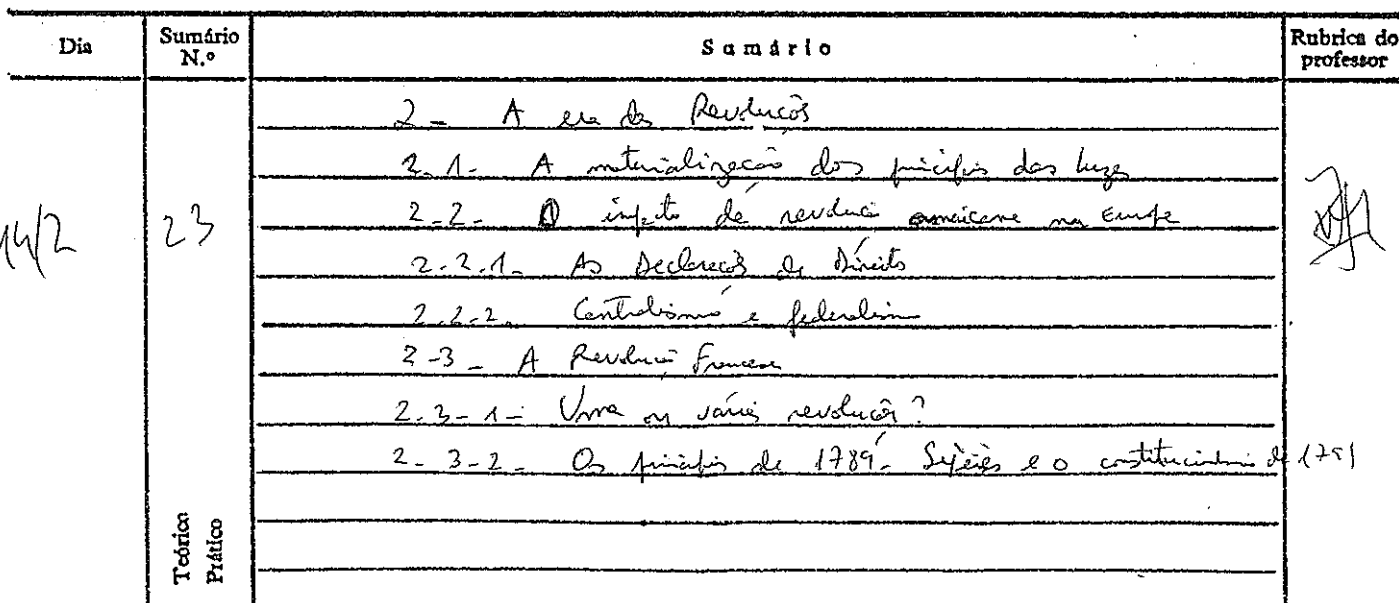 Dia Sumário N.º Sumário Rubrica do professor
2 - A era das Revoluções
2.1- A materialização dos princípios das luzes
2-2- O impacto da revolução americana na Europa
2.2.1- As Declarações de Direitos
14/2 23
2.2.2. Centralismo e federalismo
2-3- A Revolução Francesa
2.3-1- Uma ou várias revoluções?
2-3-2- Os princípios de 1789- Sieyès e o constitucionalismo de 1791
Teórico
Prático